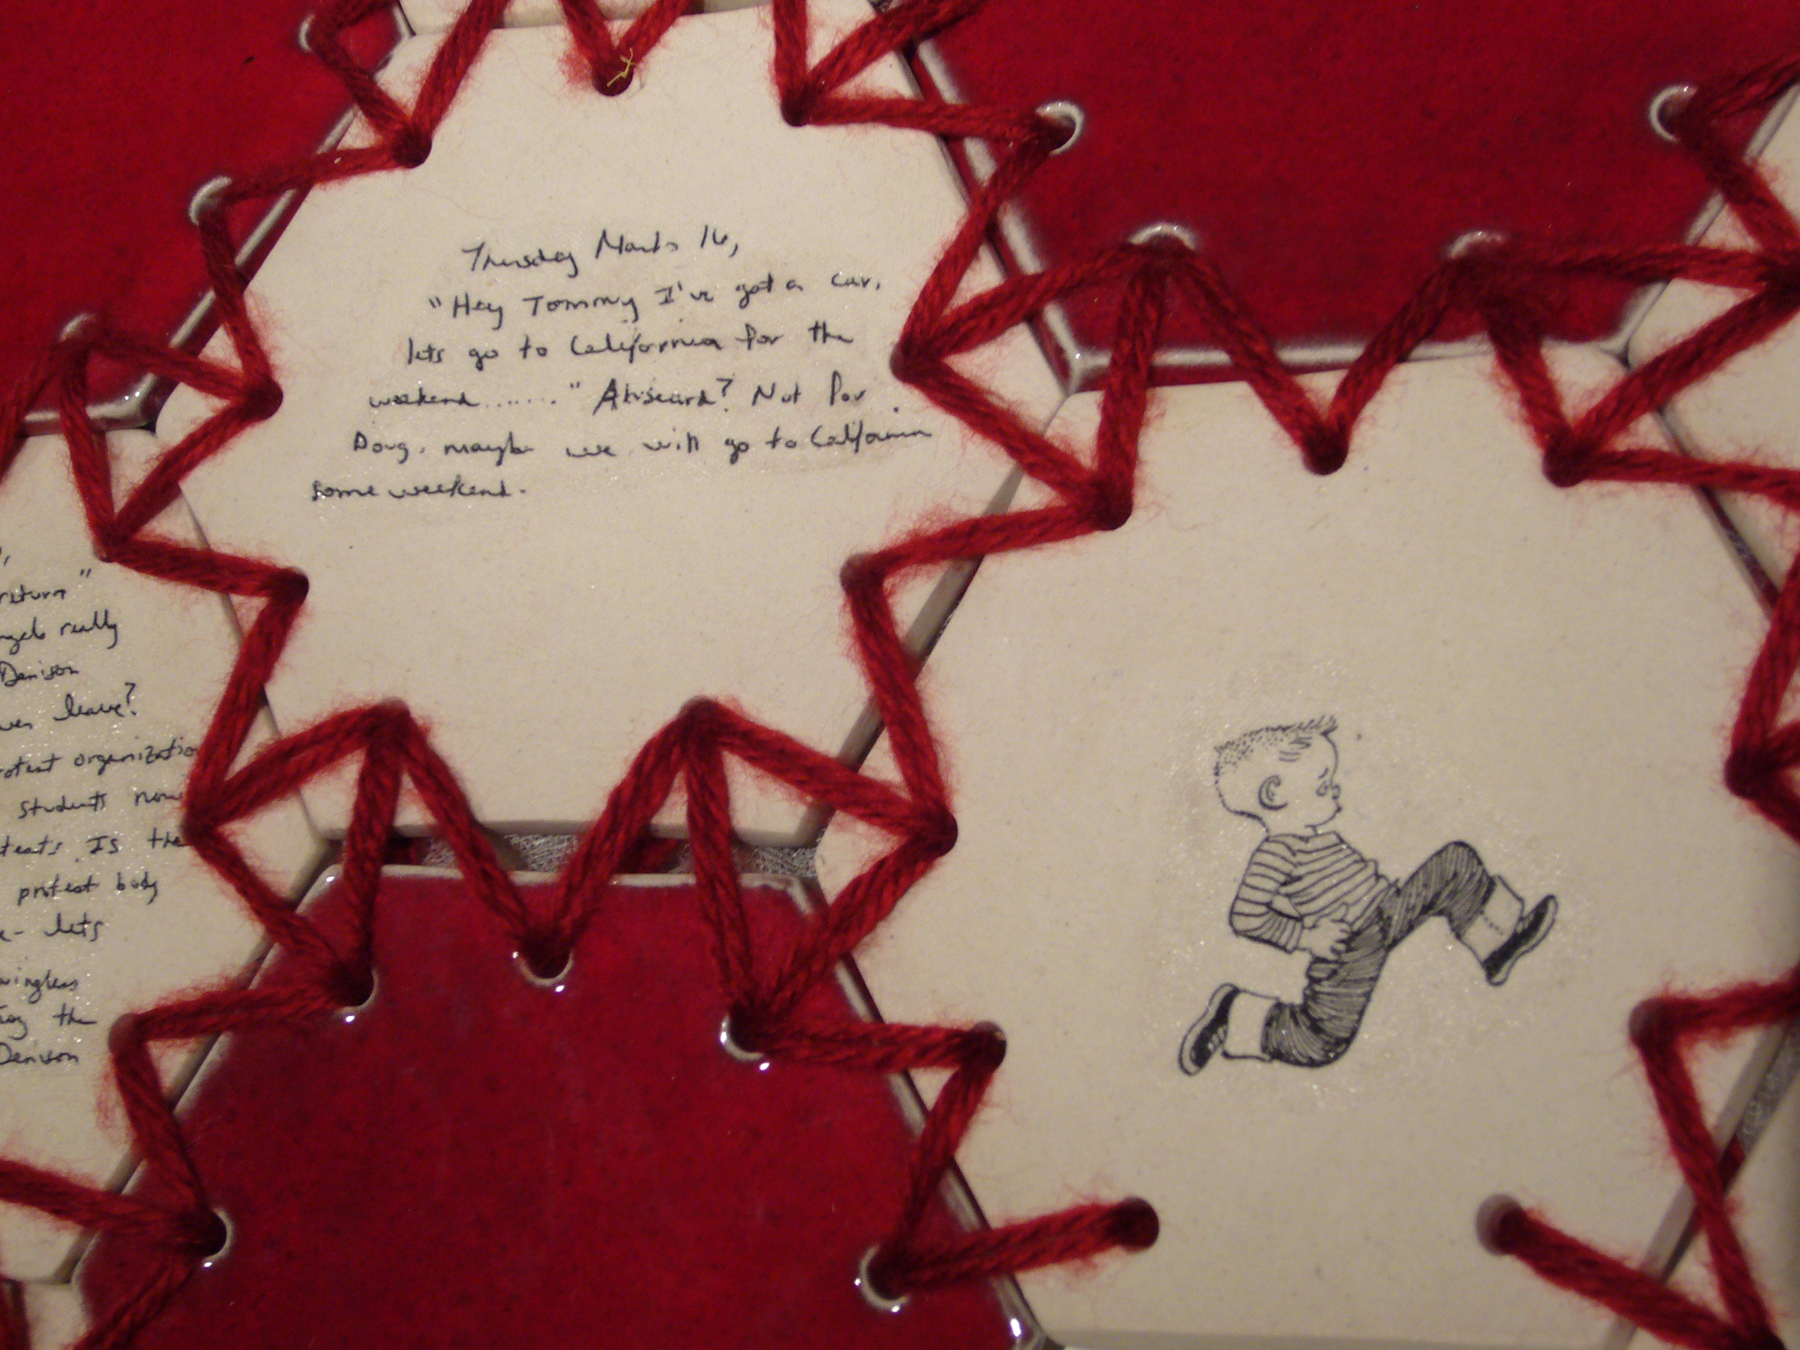 Thursday March 16,
"Hey Tommy I've got a car,
lets go to California for the
weekend......." Absurd? Not for
Doug. maybe we will go to California
some weekend.
return"
really
Denison
leave?
protest organization
students now
Is the
protest body
lets
wingless
the
Denison